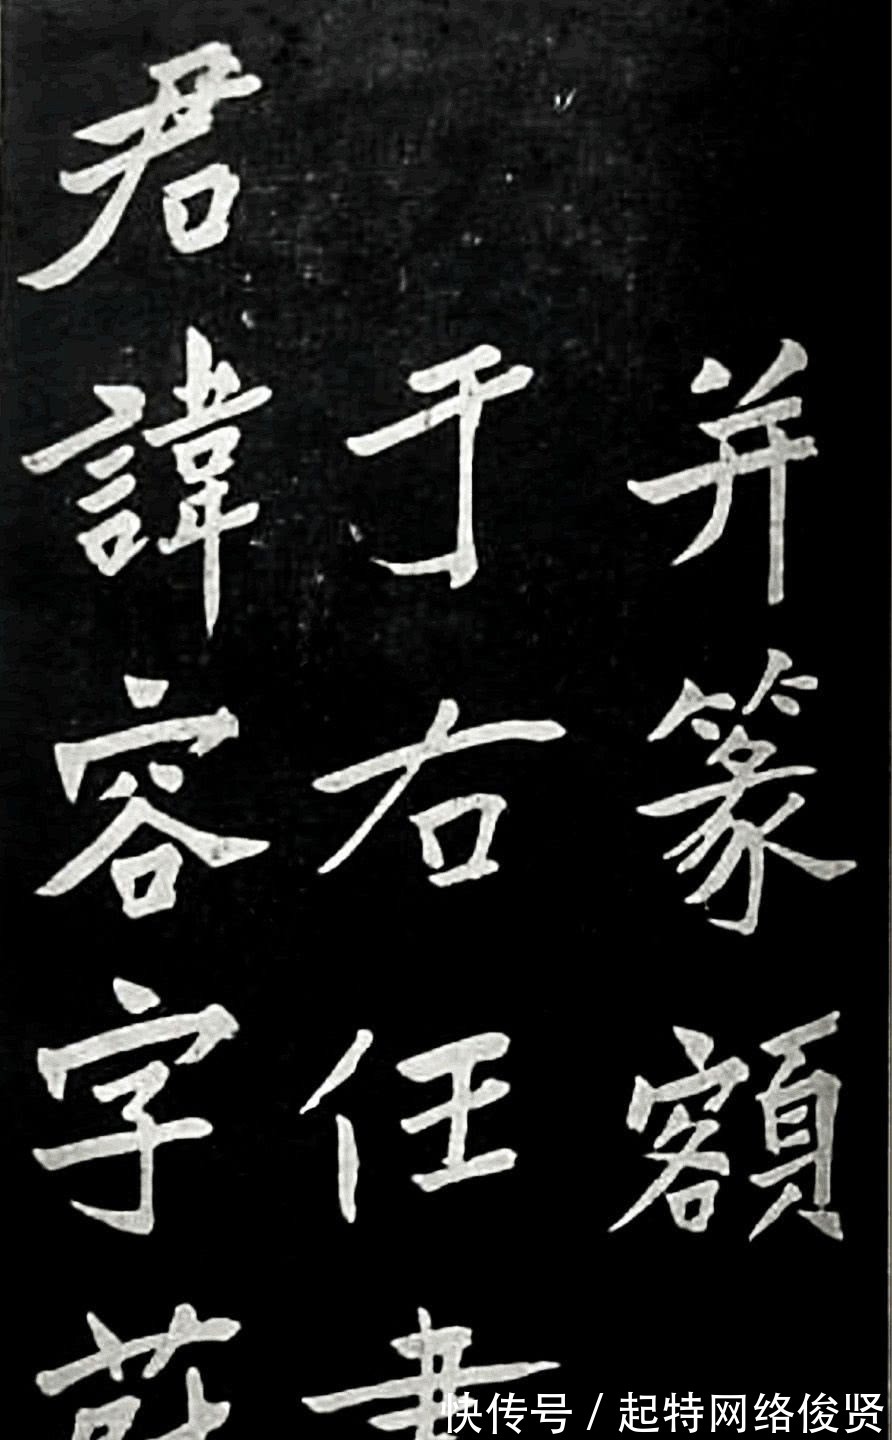 并篆額
于右任書
君諱容字
快传号 / 起特网络俊贤